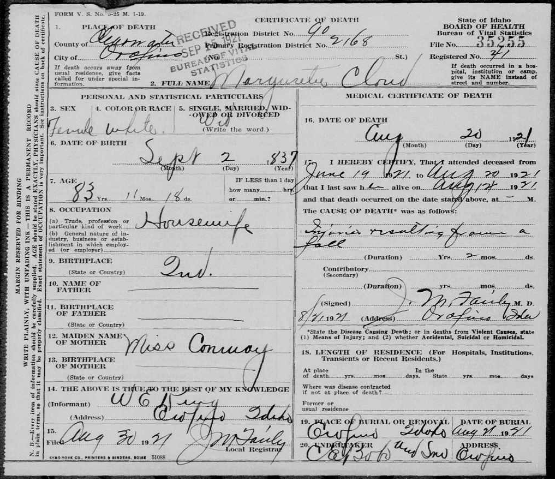 FORM V. S. No. 5-25 M. 1-19.
CERTIFICATE OF DEATH
State of Idaho
BOARD OF HEALTH
Bureau of Vital Statistics
1. PLACE OF DEATH
RECEIVED
BUREAU OF VITAL STATISTICS
County of
Registration District No. 90
File No. 35255
City of Orofino
Primary Registration District No. 2168
Registered No. 41
(No. St.)
If death occurred away from usual residence, give facts called for under special information.
If death occurred in a hospital, institution or camp, give its NAME instead of street and number.
2. FULL NAME Marguerite Cloud
PERSONAL AND STATISTICAL PARTICULARS
MEDICAL CERTIFICATE OF DEATH
3. SEX 4. COLOR OR RACE 5. SINGLE, MARRIED, WIDOWED OR DIVORCED
Female white Wid
(Write the word.)
16. DATE OF DEATH
Aug 20 1921
(Month) (Day) (Year)
6. DATE OF BIRTH
Sept 2 1837
(Month) (Day) (Year)
I HEREBY CERTIFY, That I attended deceased from
June 19 1921 to Aug 20 1921
7. AGE
IF LESS than 1 day
how many hrs.
83 Yrs. 11 Mos. 18 ds.
that I last saw her alive on Aug 18 1921
and that death occurred on the date stated above, at – M.
The CAUSE OF DEATH* was as follows:
8. OCCUPATION
(a) Trade, profession or particular kind of work
Housewife
(b) General nature of industry, business or establishment in which employed (or employer)
resulting from a
fall
(Duration) Yrs. 2 mos. ds.
9. BIRTHPLACE
(State or Country)
Ind.
Contributory
(Secondary)
(Duration) Yrs. mos. ds.
10. NAME OF FATHER
(Signed) J. M. Fairly M. D.
8/21 1921 (Address) Orofino Idaho
11. BIRTHPLACE OF FATHER
(State or Country)
*State the Disease Causing Death; or in deaths from Violent Causes, state (1) Means of Injury; and (2) whether Accidental, Suicidal or Homicidal.
12. MAIDEN NAME OF MOTHER
Miss Conway
18. LENGTH OF RESIDENCE (For Hospitals, Institutions, Transients or Recent Residents.)
13. BIRTHPLACE OF MOTHER
(State or Country)
At place of death yrs. mos. days. State yrs. mos. days.
Where was disease contracted if not at place of death?
14. THE ABOVE IS TRUE TO THE BEST OF MY KNOWLEDGE
Former or usual residence
(Informant) W E King
(Address) Orofino Idaho
19. PLACE OF BURIAL OR REMOVAL DATE OF BURIAL
Orofino Idaho Aug 21 1921
15.
Filed Aug 30 1921 J M Fairly
Local Registrar
20. UNDERTAKER ADDRESS
and Son Orofino
MARGIN RESERVED FOR BINDING
WRITE PLAINLY, WITH UNFADING INK—THIS IS A PERMANENT RECORD